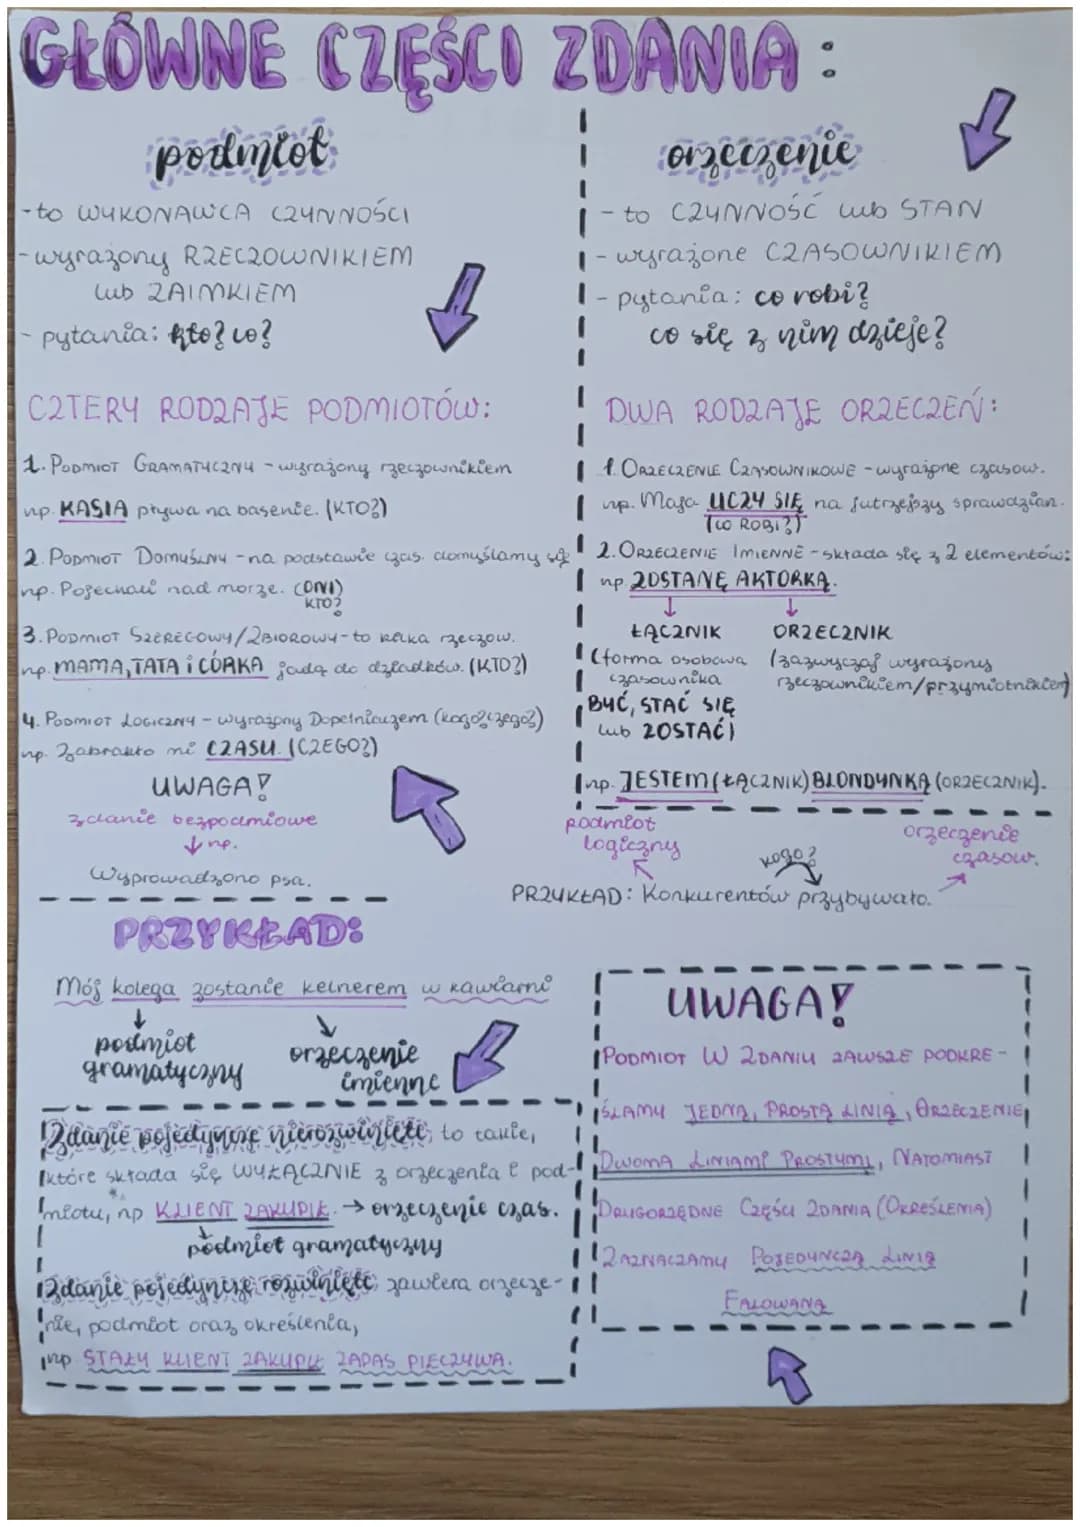 GŁÓWNE CZĘŚCI ZDANIA:
podmiot
- to WYKONAWCA CZYNNOŚCI
- wyrażony RZECZOWNIKIEM
lub ZAIMKIEM
- pytania: kto? co?
CZTERY RODZAJE PODMIOTÓW:
1. PODMIOT GRAMATYCZNY - wyrażony rzeczownikiem
np. KASIA pływa na basenie. (KTO?)
2. PODMIOT DOMYŚLNY - na podstawie czas. domyślamy się
np. Pojechali nad morze. (ONI)
KTO?
3. PODMIOT SZEREGOWY/ZBIOROWY - to kilka rzeczow.
np. MAMA, TATA i CÓRKA jadą do dziadków. (KTO?)
4. PODMIOT LOGICZNY - wyrażony Dopełniaczem (kogo? czego?)
np. Zabrakło mi CZASU. (CZEGO?)
UWAGA!
zdanie bezpodmiowe
np.
Wyprowadzono psa.
orzeczenie
- to CZYNNOŚĆ lub STAN
- wyrażone CZASOWNIKIEM
- pytania: co robi?
co się z nim dzieje?
DWA RODZAJE ORZECZEŃ:
1. ORZECZENIE CZASOWNIKOWE - wyrażone czasow.
np. Maja UCZY SIĘ na jutrzejszy sprawdzian.
(CO ROBI?)
2. ORZECZENIE IMIENNE - składa się z 2 elementów:
np. ZOSTANĘ AKTORKĄ.
ŁĄCZNIK ORZECZNIK
(forma osobowa czasownika BYĆ, STAĆ SIĘ lub ZOSTAĆ)
(zazwyczaj wyrażony rzeczownikiem/przymiotnikiem)
np. JESTEM (ŁĄCZNIK) BLONDYNKĄ (ORZECZNIK).
podmiot logiczny
kogo?
orzeczenie czasow.
PRZYKŁAD: Konkurentów przybywało.
PRZYKŁAD:
Mój kolega zostanie kelnerem w kawiarni
podmiot gramatyczny
orzeczenie imienne
Zdanie pojedyncze nierozwinięte; to takie,
które składa się WYŁĄCZNIE z orzeczenia i pod-
miotu, np KLIENT ZAKUPIŁ. → orzeczenie czas.
podmiot gramatyczny
Zdanie pojedyncze rozwinięte; zawiera orzecze-
nie, podmiot oraz określenia,
np STAŁY KLIENT ZAKUPIŁ ZAPAS PIECZYWA.
UWAGA!
PODMIOT W ZDANIU ZAWSZE PODKRE-
ŚLAMY JEDNĄ, PROSTĄ LINIĄ, ORZECZENIE,
DWOMA LINIAMI PROSTYMI, NATOMIAST
DRUGORZĘDNE CZĘŚCI ZDANIA (OKREŚLENIA)
ZAZNACZAMY POJEDYNCZĄ LINIĄ
FALOWANĄ